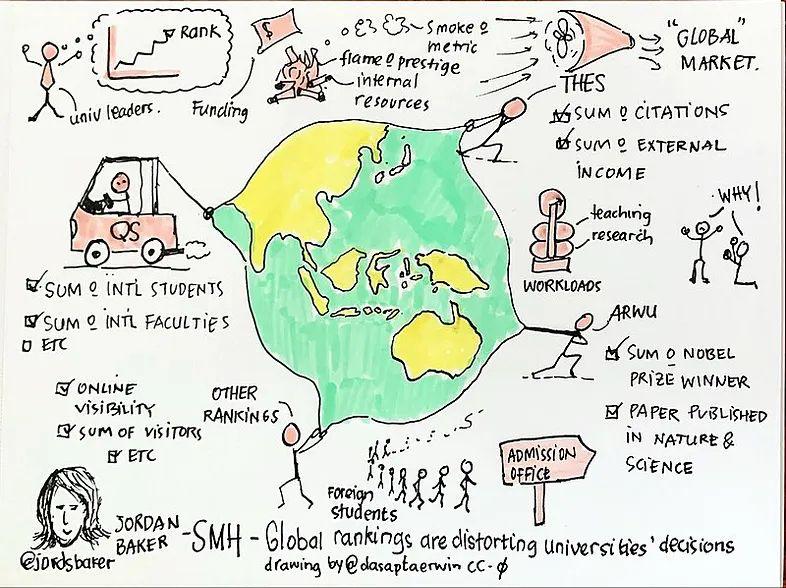 RANK
univ leaders.
Funding
$
smoke o
metric
flame o prestige
internal
resources
"GLOBAL"
MARKET.
THES
SUM o CITATIONS
SUM o EXTERNAL
INCOME
QS
SUM o INT'L STUDENTS
SUM o INT'L FACULTIES
ETC
teaching
research
WORKLOADS
WHY!
ARWU
SUM o NOBEL
PRIZE WINNER
PAPER PUBLISHED
IN NATURE &
SCIENCE
ONLINE
VISIBILITY
SUM OF VISITORS
ETC
OTHER
RANKINGS
Foreign
students
ADMISSION
OFFICE
JORDAN
BAKER
@jordsbaker
-SMH - Global rankings are distorting universities' decisions
drawing by @dasaptaerwin CC-0